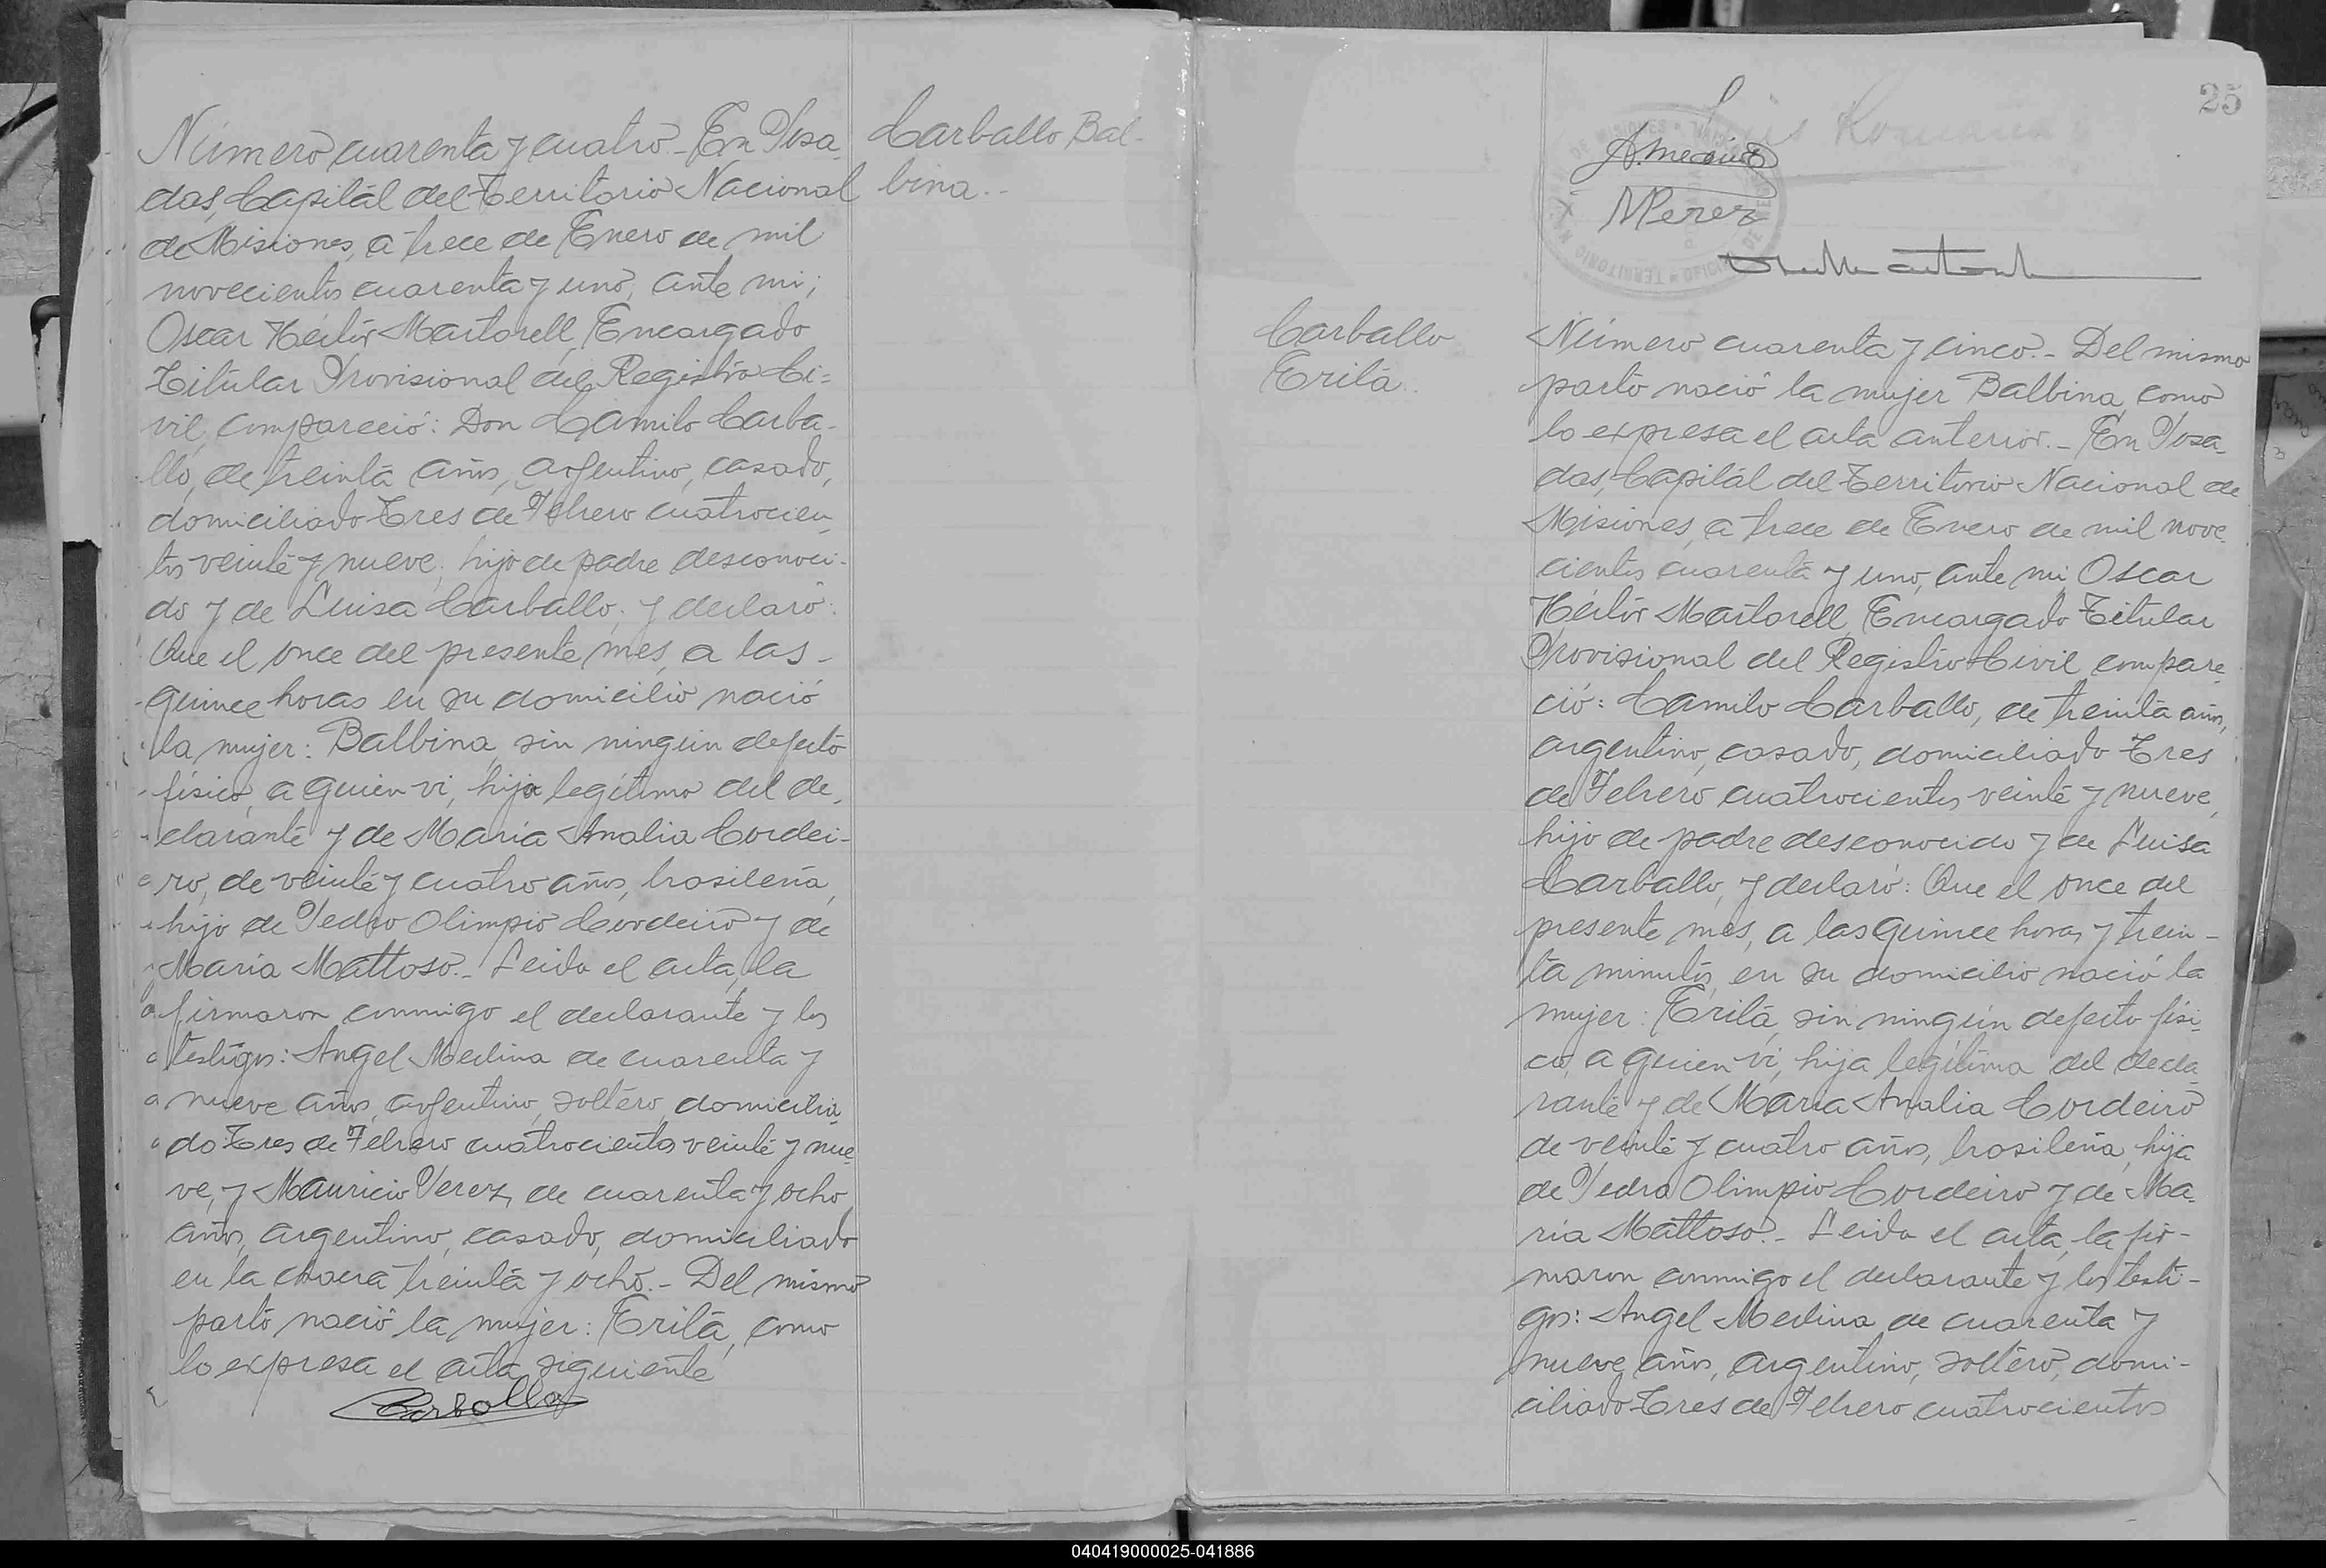 Número cuarenta y cuatro.- En Posa
das, Capitál del Territorio Nacional
de Misiones, a trece de Enero de mil
novecientos cuarenta y uno, ante mi;
Oscar Héctor Martorell, Encargado
Titular Provisional del Registro Ci=
vil, compareció: Don Camilo Carba-
llo, de treinta años, argentino, casado,
domiciliado Tres de Febrero cuatrocien
tos veinte y nueve, hijo de padre desconoci-
do y de Luisa Carballo; y declaró:
Que el once del presente mes, a las-
quince horas en su domicilio nació
la mujer: Balbina, sin ningún defecto
físico, a quien vi, hija legítima del de
clarante y de María Analia Cordei-
ro, de veinte y cuatro años, brasileña,
hija de Pedro Olimpio Cordeiro y de
María Mattoso.- Leida el acta, la
firmaron conmigo el declarante y los
testigos: Angel Medina de cuarenta y
nueve años, argentino, soltero, domicilia
do Tres de Febrero cuatrocientos veinte y nue
ve, y Mauricio Perez, de cuarenta y ocho
años, argentino, casado, domiciliado
en la chacra treinta y ocho.- Del mismo
parto nació la mujer: Erita, como
lo expresa el acta siguiente
Carballo
Carballo Bal-
bina..
25
A. Medina
MPerez
Carballo
Erita..
Número cuarenta y cinco.- Del mismo
parto nació la mujer Balbina, como
lo expresa el acta anterior.- En Posa
das, Capitál del Territorio Nacional de
Misiones, a trece de Enero de mil nove
cientos cuarenta y uno, ante mi, Oscar
Héctor Martorell, Encargado Titular
Provisional del Registro Civil compare
ció: Camilo Carballo, de treinta años,
argentino, casado, domiciliado Tres
de Febrero cuatrocientos veinte y nueve,
hijo de padre desconocido y de Luisa
Carballo, y declaró: Que el once del
presente mes, a las quince horas y trein-
ta minutos, en su domicilio nació la
mujer: Erita, sin ningún defecto físi
co, a quien vi, hija legítima del decla
rante y de María Analia Cordeiro
de veinte y cuatro años, brasileña, hija
de Pedro Olimpio Cordeiro y de Ma-
ria Mattoso.- Leida el acta, la fir-
maron conmigo el declarante y los testi-
gos: Angel Medina de cuarenta y
nueve años, argentino, soltero, domi-
ciliado Tres de Febrero cuatrocientos
040419000025-041886